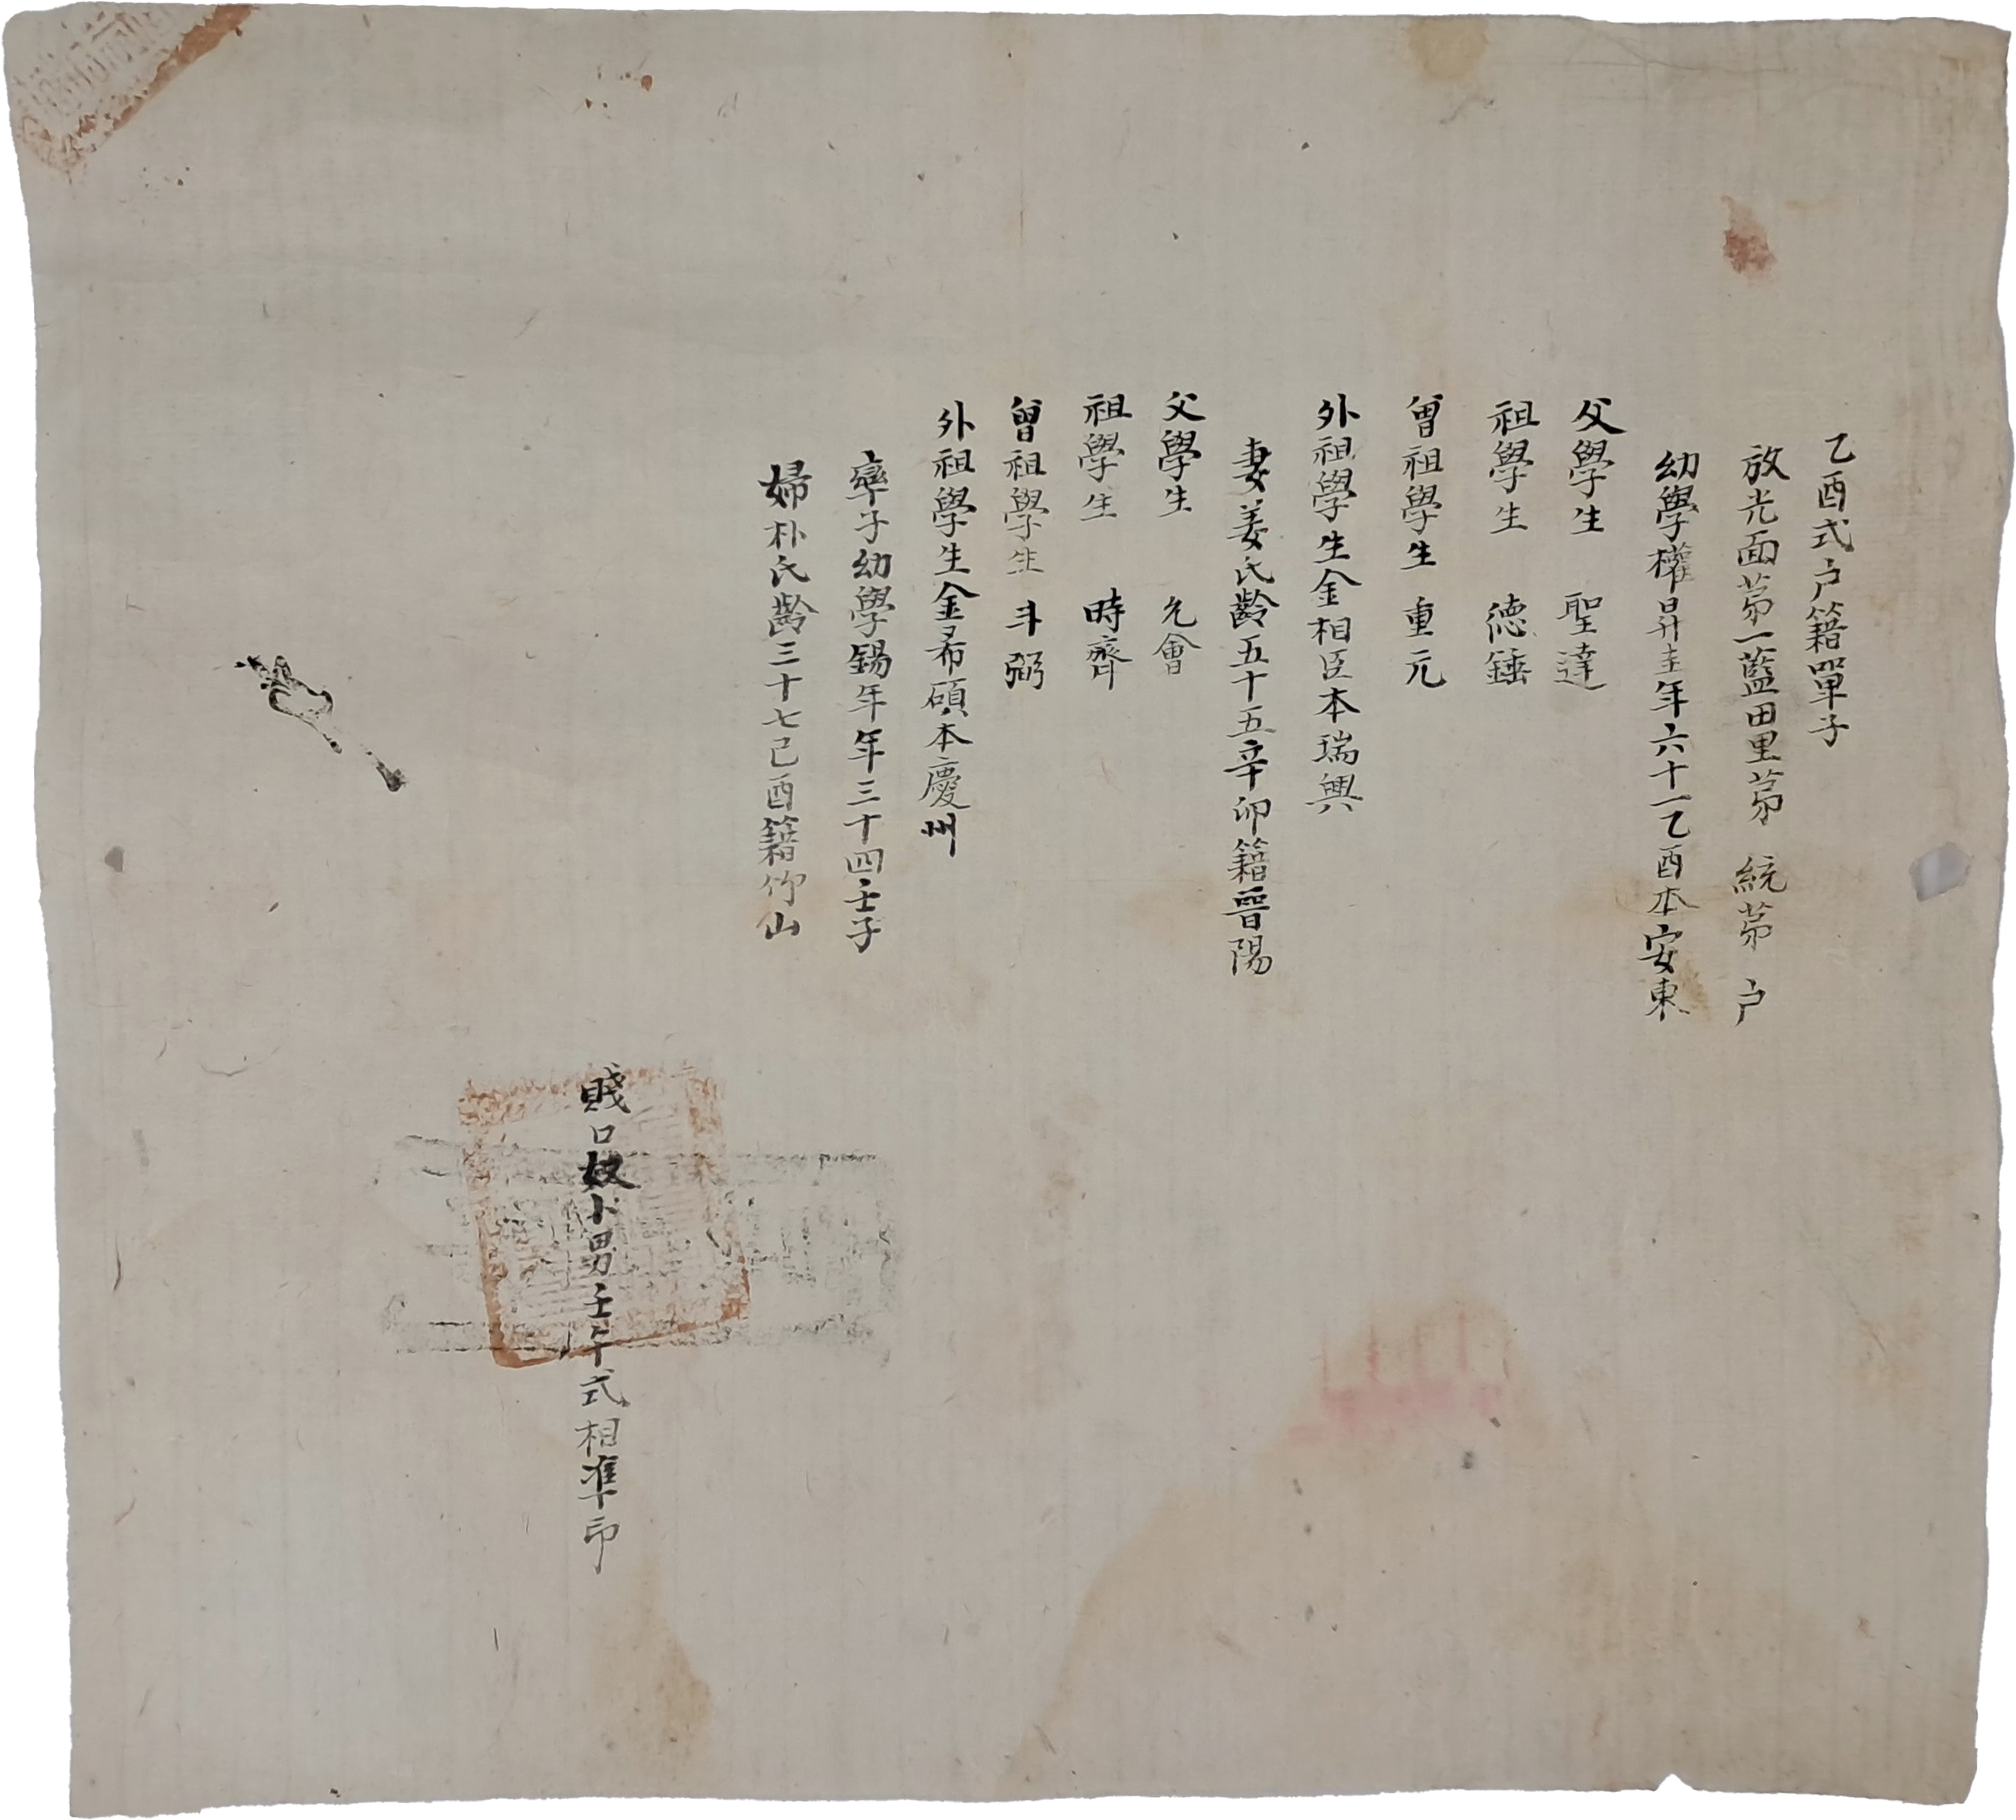 乙酉式户籍單子
放光面苐一藍田里苐 統苐 户
幼學權昇圭年六十一乙酉本安東
父學生 聖達
祖學生 德錘
曾祖學生 重元
外祖學生金相臣本瑞興
妻姜氏齡五十五辛卯籍晉陽
父學生 允會
祖學生 時齊
曾祖學生 斗弼
外祖學生金希碩本慶州
率子幼學錫年年三十四壬子
婦朴氏齡三十七己酉籍竹山
賤口奴卜男壬午式相準印